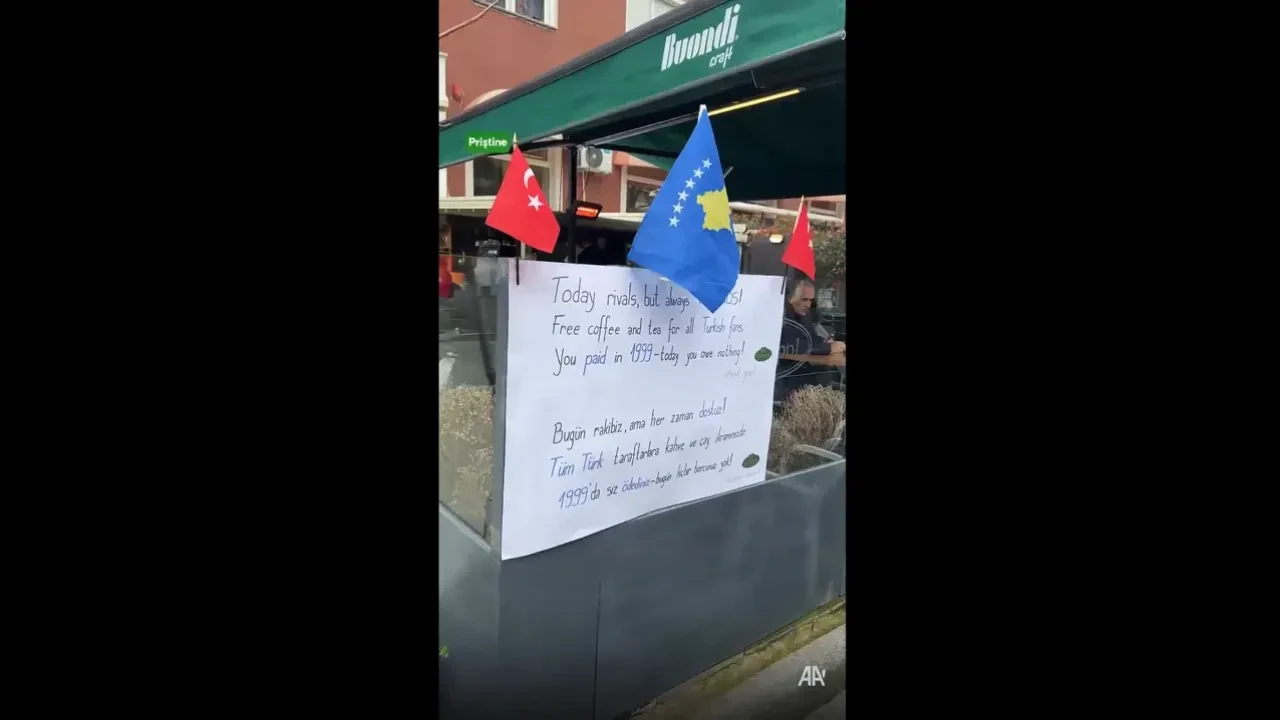 Buondi
craft
Priştine
Today rivals, but always
Free coffee and tea for all Turkish fans.
You paid in 1999-today you owe nothing!
Bugün rakibiz, ama her zaman dostuz!
Tüm Türk taraftarlara kahve ve çay ikramımızdır.
1999'da siz ödediniz-bugün hiçbir borcunuz yok!
AA